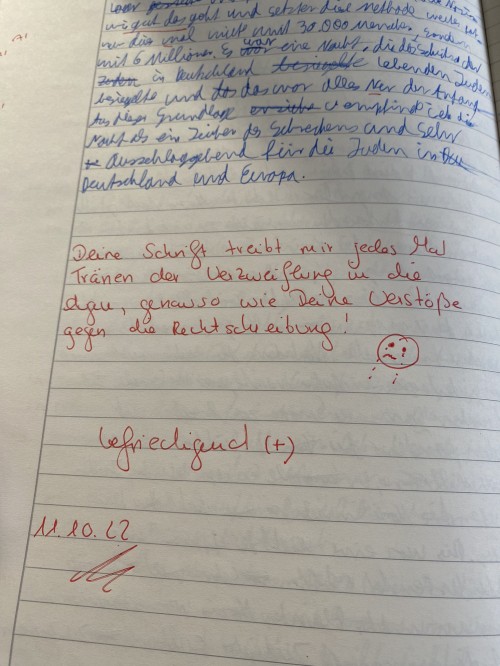 wie gut das geht und setzten diese Methode weiter
nur dies mal nicht mit 30.000 Menschen, sondern
mit 6 Millionen. Es war eine Nacht, die das Schicksal der
in Deutschland lebenden Juden
besiegelte und das war alles Nur der Anfang
Aus dieser Grundlage empfinde ich die
Nacht als ein Zeichen des Schreckens und sehr
Ausschlaggebend für die Juden in
Deutschland und Europa.
Deine Schrift treibt mir jedes Mal
Tränen der Verzweiflung in die
Augen, genauso wie Deine Verstöße
gegen die Rechtschreibung!
befriedigend (+)
11.10.22